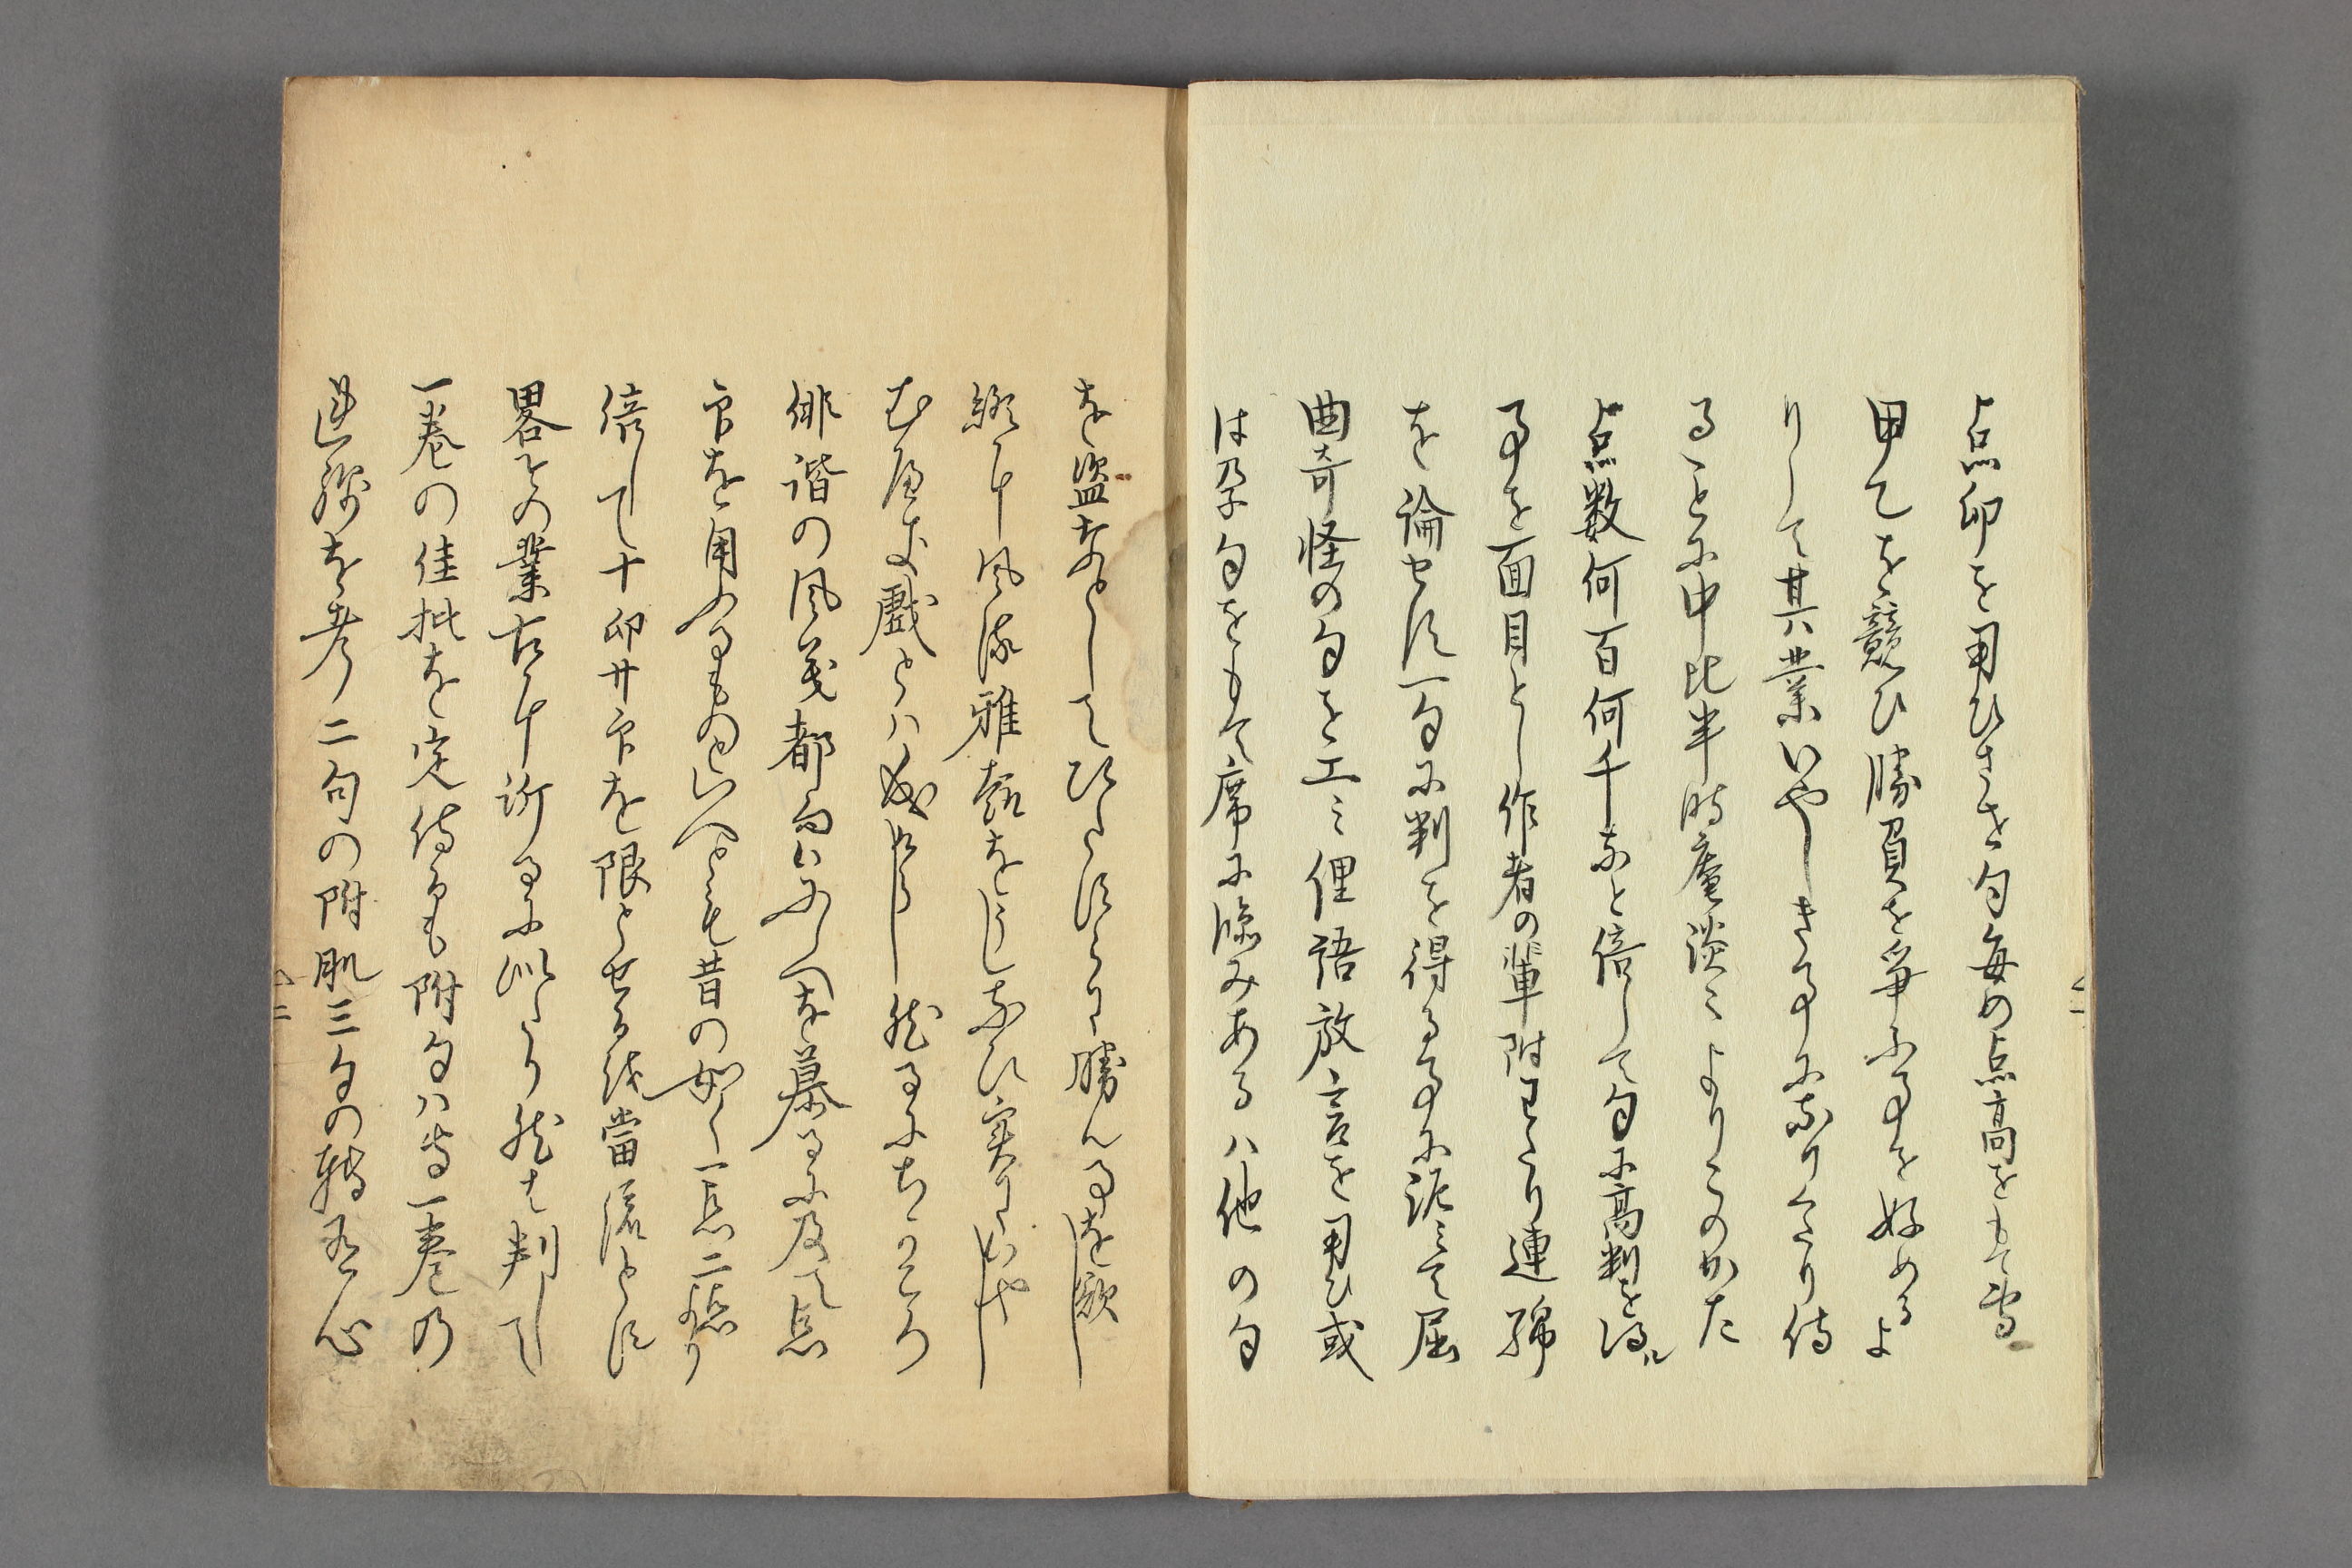 点印を用ひさせ句毎の点高をもて等
甲乙を競ひ勝負を争ふ事を好めるよ
りして其業いやしき事になりくたり侍
ることに中比半時庵淡々よりこのかた
点数何百何千なと倍して句に高判を得ル
事を面目とし作者の輩附くたり連綿
を論せす一句に判を得る事に泥みて屈
曲奇怪の句を工ミ俚語放言を用ひ或
は孕句をもて席に臨みあるハ他の句
を盗なとしてひたすらに勝ん事を欲し
総て風流雅藝をうしなひ実にいやし
む遊戯とハ成けらし然るにちかころ
俳諧の風義都鄙いにしへを慕ふに及て点
印を用ゆるものといへとも昔の如く一点二点より
倍して十印廿印を限とせるは當流とす
畧その業古に許るに似たり然も判して
一巻の佳批を定侍るも附句ハ尚一巻の
連綿を考二句の附肌三句の轉有心